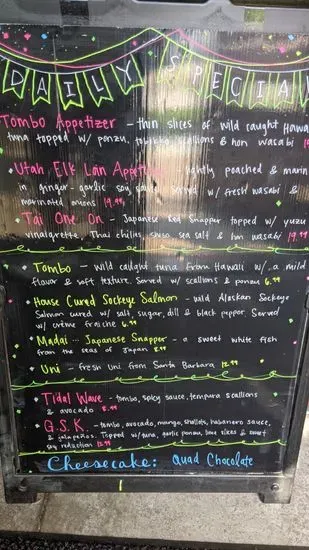 DAILY SPECIAL
Tombo Appetizer - thin slices of wild caught Hawa
tuna topped w/ ponzu, tobiko, scallions & hon wasabi
• Utah Elk Loin Appeti - lightly poached & marin
in ginger-garlic soy sauce. Served w/ fresh wasabi &
marinated onions 19.99
• Tai One On - Japanese Red Snapper topped w/ yuzu
vinaigrette, Thai chilies, shiso, sea salt & hon wasabi 19.99
• Tombo - wild caught tuna from Hawaii w/ a mild
flavor & soft texture. Served w/ scallions & ponzu 6.99
• House Cured Sockeye Salmon - wild Alaskan Sockeye
Salmon cured w/ salt, sugar, dill & black pepper. Served
w/ crème fraiche 6.99
• Madai - Japanese Snapper - a sweet white fish
from the seas of Japan 8.99
• Uni - Fresh Uni from Santa Barbara 12.99
• Tidal Wave - tombo, spicy sauce, tempura scallions
& avocado 8.99
• G.S.K. - tombo, avocado, mango, shallots, habanero sauce,
& jalapeños. Topped w/ tuna, garlic ponzu, lime slices & sweet
soy reduction 12.99
Cheesecake: Quad Chocolate